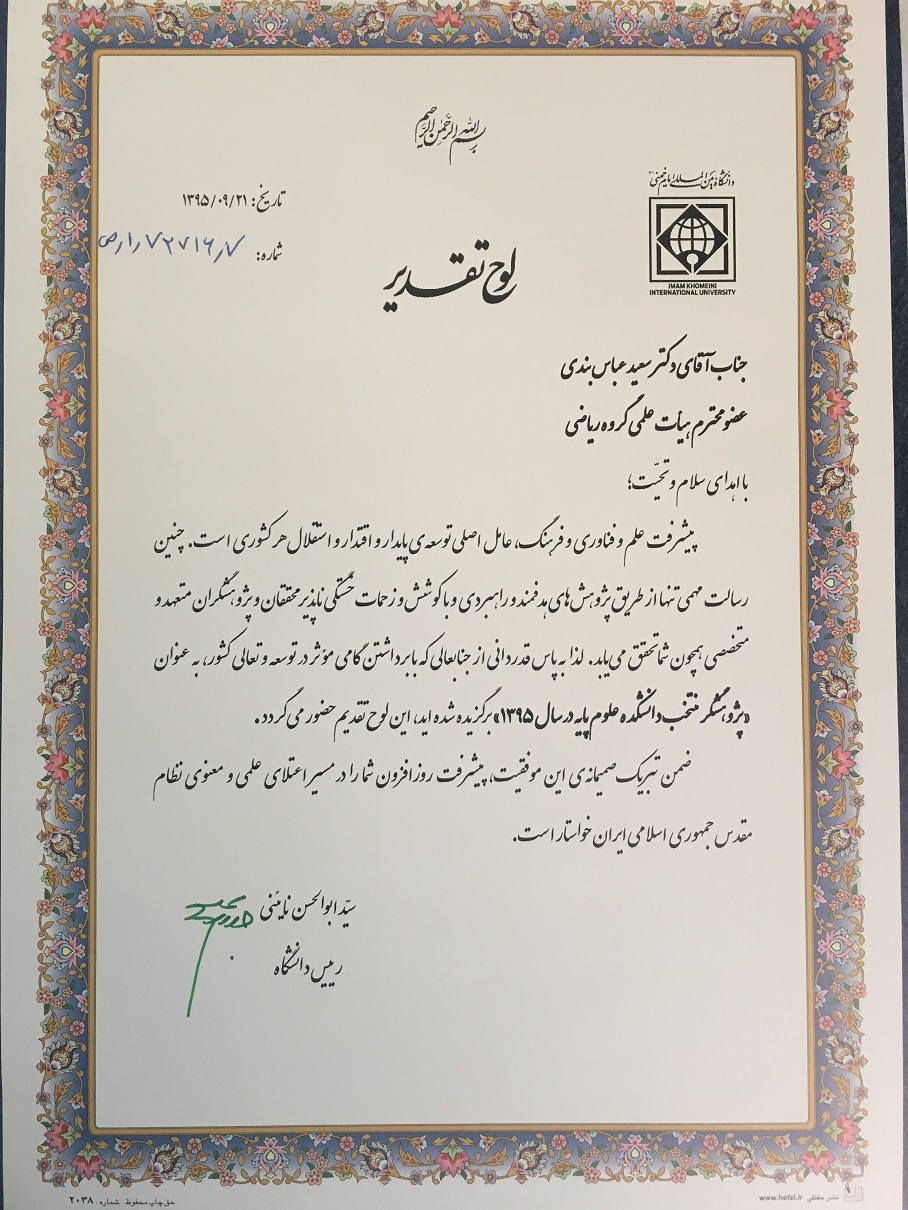 بسم الله الرحمن الرحیم
دانشگاه بین المللی امام خمینی
IMAM KHOMEINI
INTERNATIONAL UNIVERSITY
تاریخ: ۱۳۹۵/۰۹/۲۱
شماره:
لوح تقدیر
جناب آقای دکتر سعید عباس بندی
عضو محترم هیأت علمی گروه ریاضی
با اهدای سلام و تحیّت؛
پیشرفت علم و فناوری و فرهنگ، عامل اصلی توسعه‌ی پایدار و اقتدار و استقلال هر کشوری است. چنین
رسالت مهمی تنها از طریق پژوهش‌های هدفمند و راهبردی و با کوشش و زحمات خستگی ناپذیر محققان و پژوهشگران متعهد و
متخصصی همچون شما تحقق می‌یابد. لذا به پاس قدردانی از جنابعالی که با برداشتن گامی مؤثر در توسعه و تعالی کشور، به عنوان
«پژوهشگر منتخب دانشکده علوم پایه در سال ۱۳۹۵» برگزیده شده اید، این لوح تقدیم حضور می گردد.
ضمن تبریک صمیمانه‌ی این موفقیت، پیشرفت روزافزون شما را در مسیر اعتلای علمی و معنوی نظام
مقدس جمهوری اسلامی ایران خواستار است.
سیّد ابوالحسن نائینی
رییس دانشگاه
حق چاپ محفوظ شماره: ۲۰۳۸
نشر حفظی www.hefzi.ir